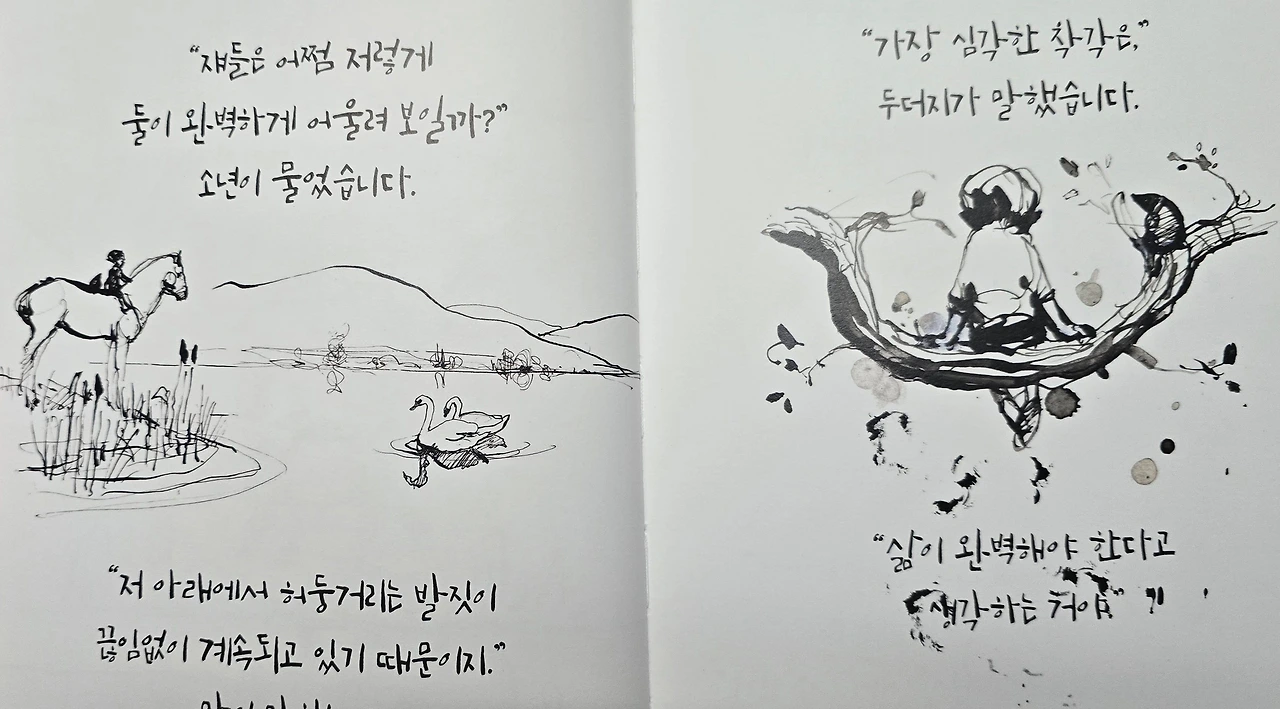 “쟤들은 어쩜 저렇게
둘이 완벽하게 어울려 보일까?”
소년이 물었습니다.
“저 아래에서 허둥거리는 발짓이
끊임없이 계속되고 있기 때문이지.”
“가장 심각한 착각은,”
두더지가 말했습니다.
“삶이 완벽해야 한다고
생각하는 거야.”